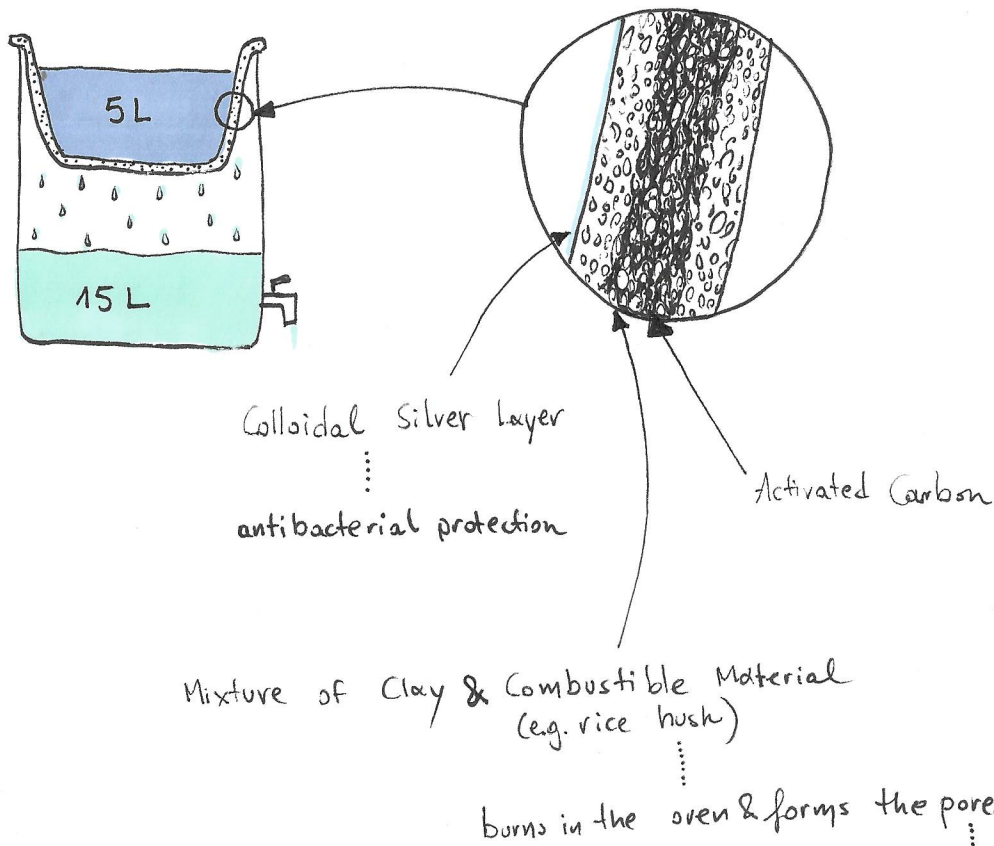 5L
15L
Colloidal Silver Layer
antibacterial protection
Activated Carbon
Mixture of Clay & Combustible Material
(e.g. rice husk)
burns in the oven & forms the pore